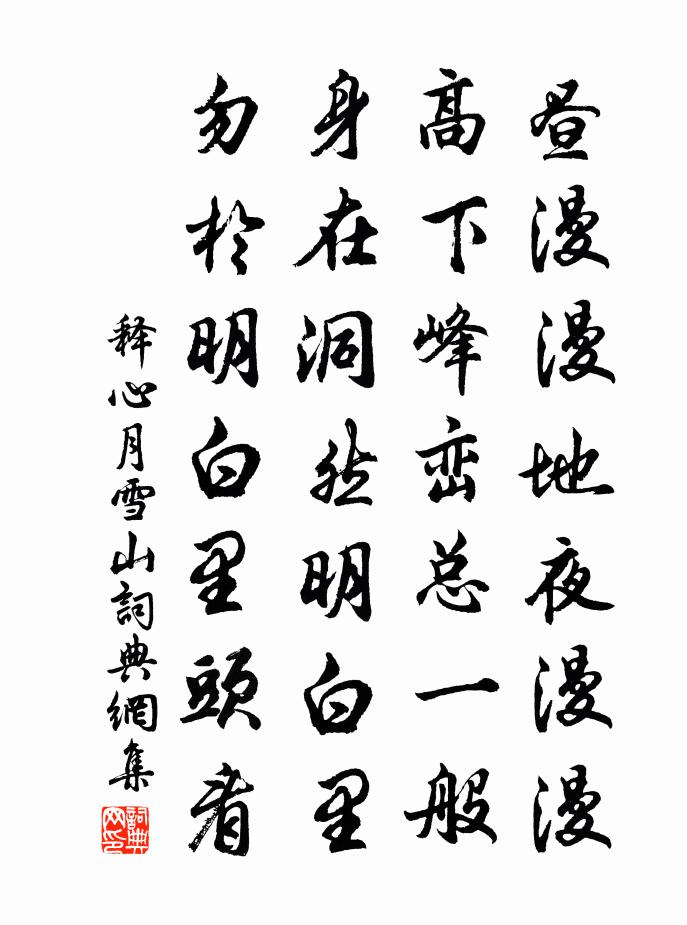 昼漫漫地夜漫漫
高下峰峦总一般
身在洞然明白里
勿于明白里头看
释心月雪山词典网集
词典网印